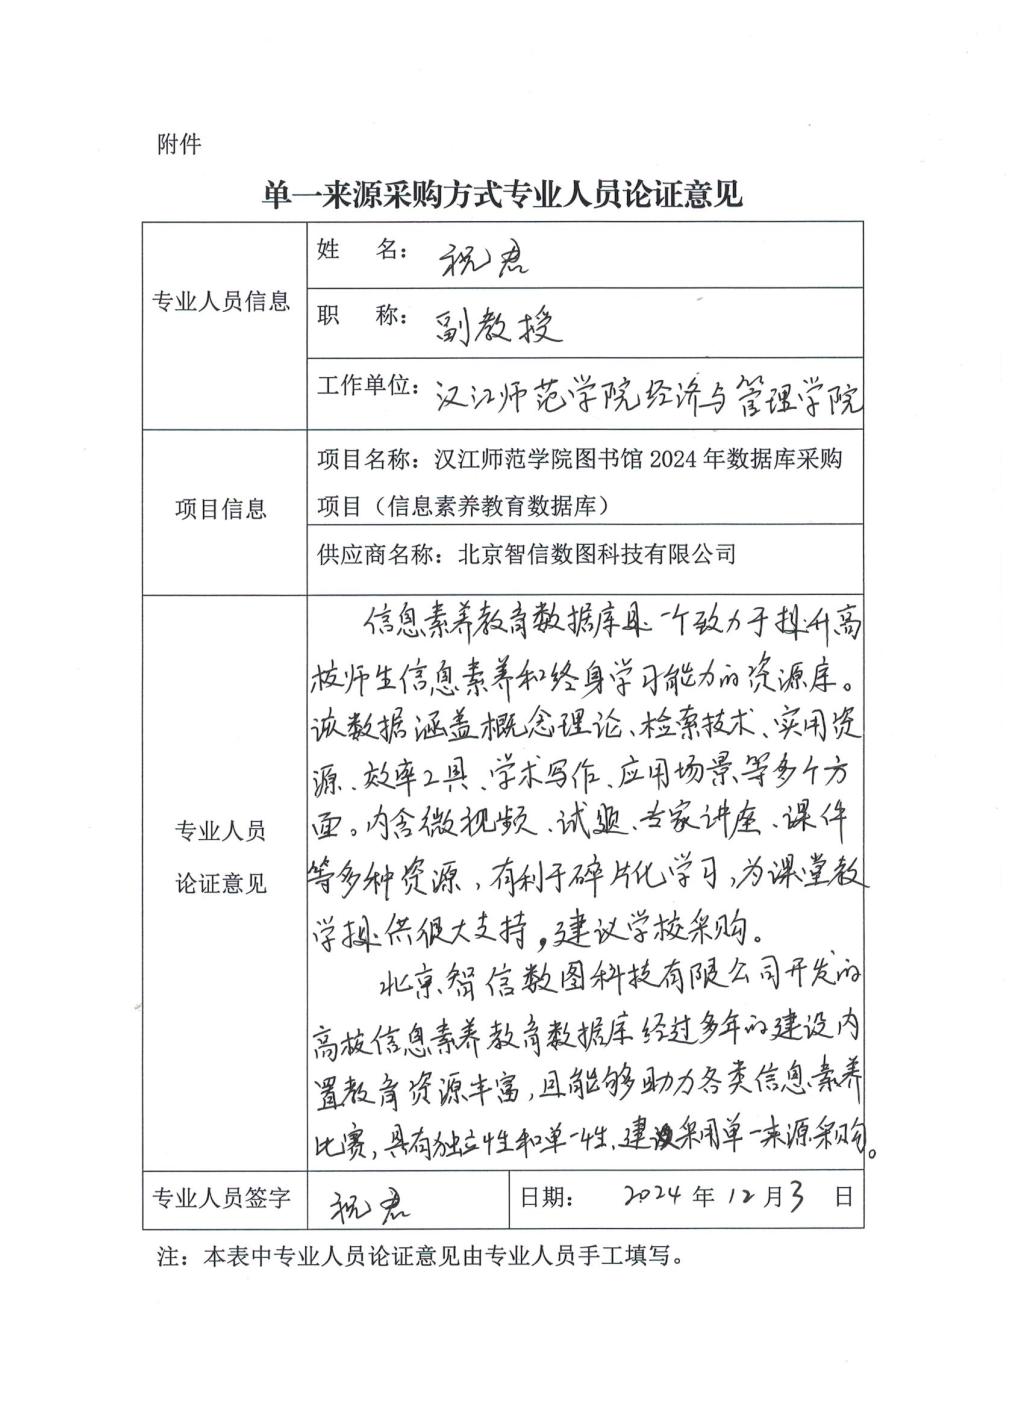 附件
单一来源采购方式专业人员论证意见
专业人员信息
姓 名： 祝君
职 称： 副教授
工作单位： 汉江师范学院经济与管理学院
项目信息
项目名称：汉江师范学院图书馆 2024 年数据库采购
项目（信息素养教育数据库）
供应商名称：北京智信数图科技有限公司
专业人员
论证意见
信息素养教育数据库是一个致力于提升高
校师生信息素养和终身学习能力的资源库。
该数据涵盖概念理论、检索技术、实用资
源、效率工具、学术写作、应用场景等多个方
面。内含微视频、试题、专家讲座、课件
等多种资源，有利于碎片化学习，为课堂教
学提供很大支持，建议学校采购。
北京智信数图科技有限公司开发的
高校信息素养教育数据库经过多年的建设内
置教育资源丰富，且能够助力各类信息素养
比赛，具有独立性和单一性，建议采用单一来源采购。
专业人员签字
祝君
日期： 2024 年 12 月 3 日
注：本表中专业人员论证意见由专业人员手工填写。